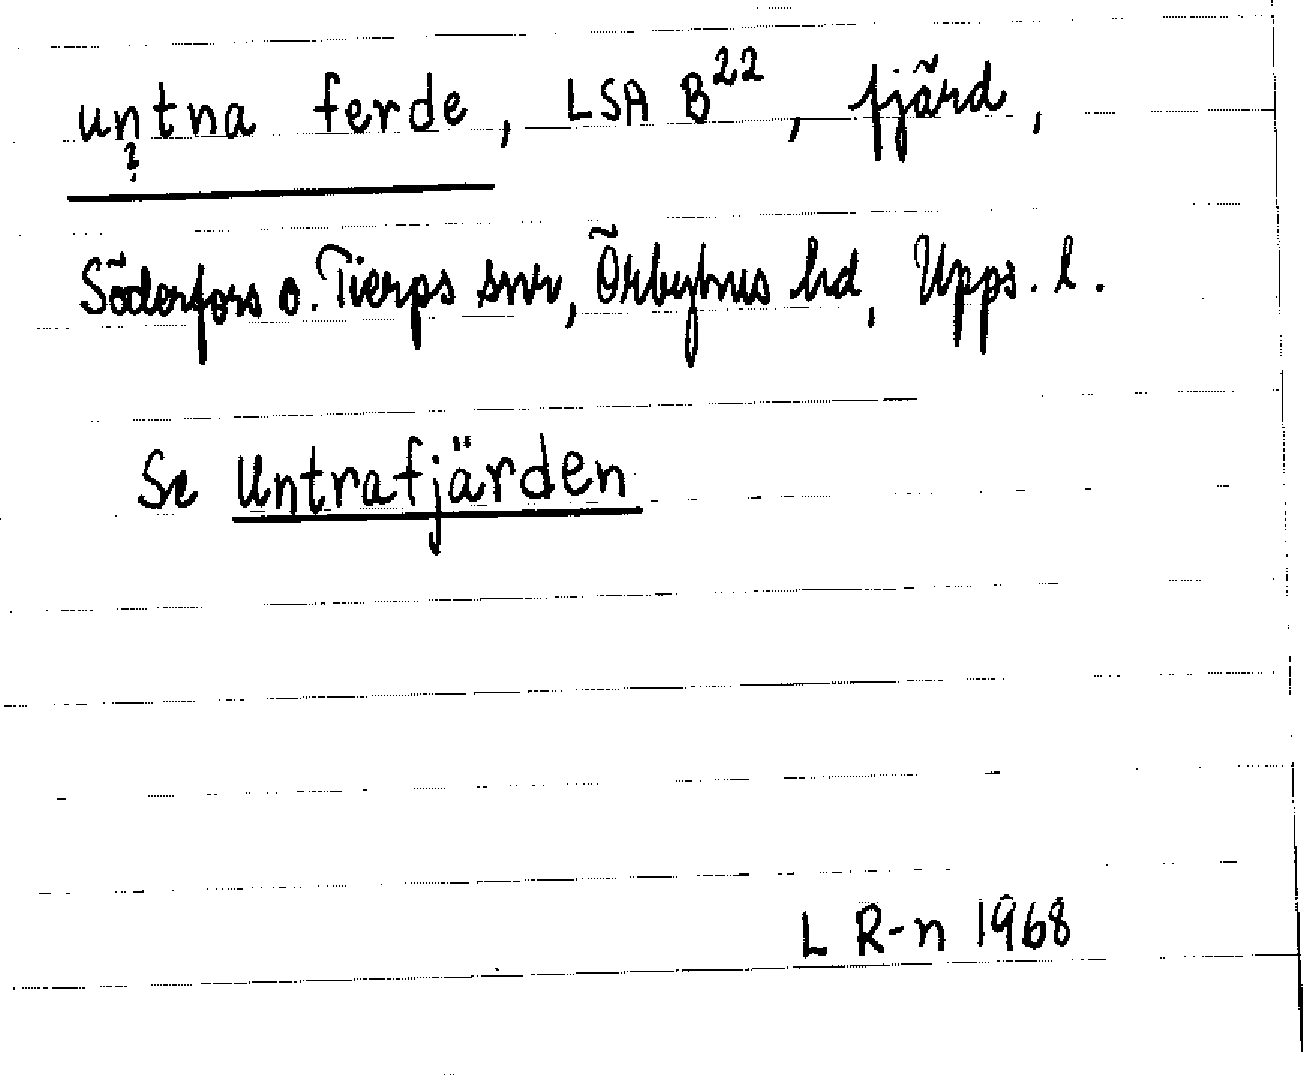 untna ferde, LSA B²², fjärd,
?
Söderfors o. Tierps snr, Örbyhus hd, Upps. l.
Se Untrafjärden
L R-n 1968